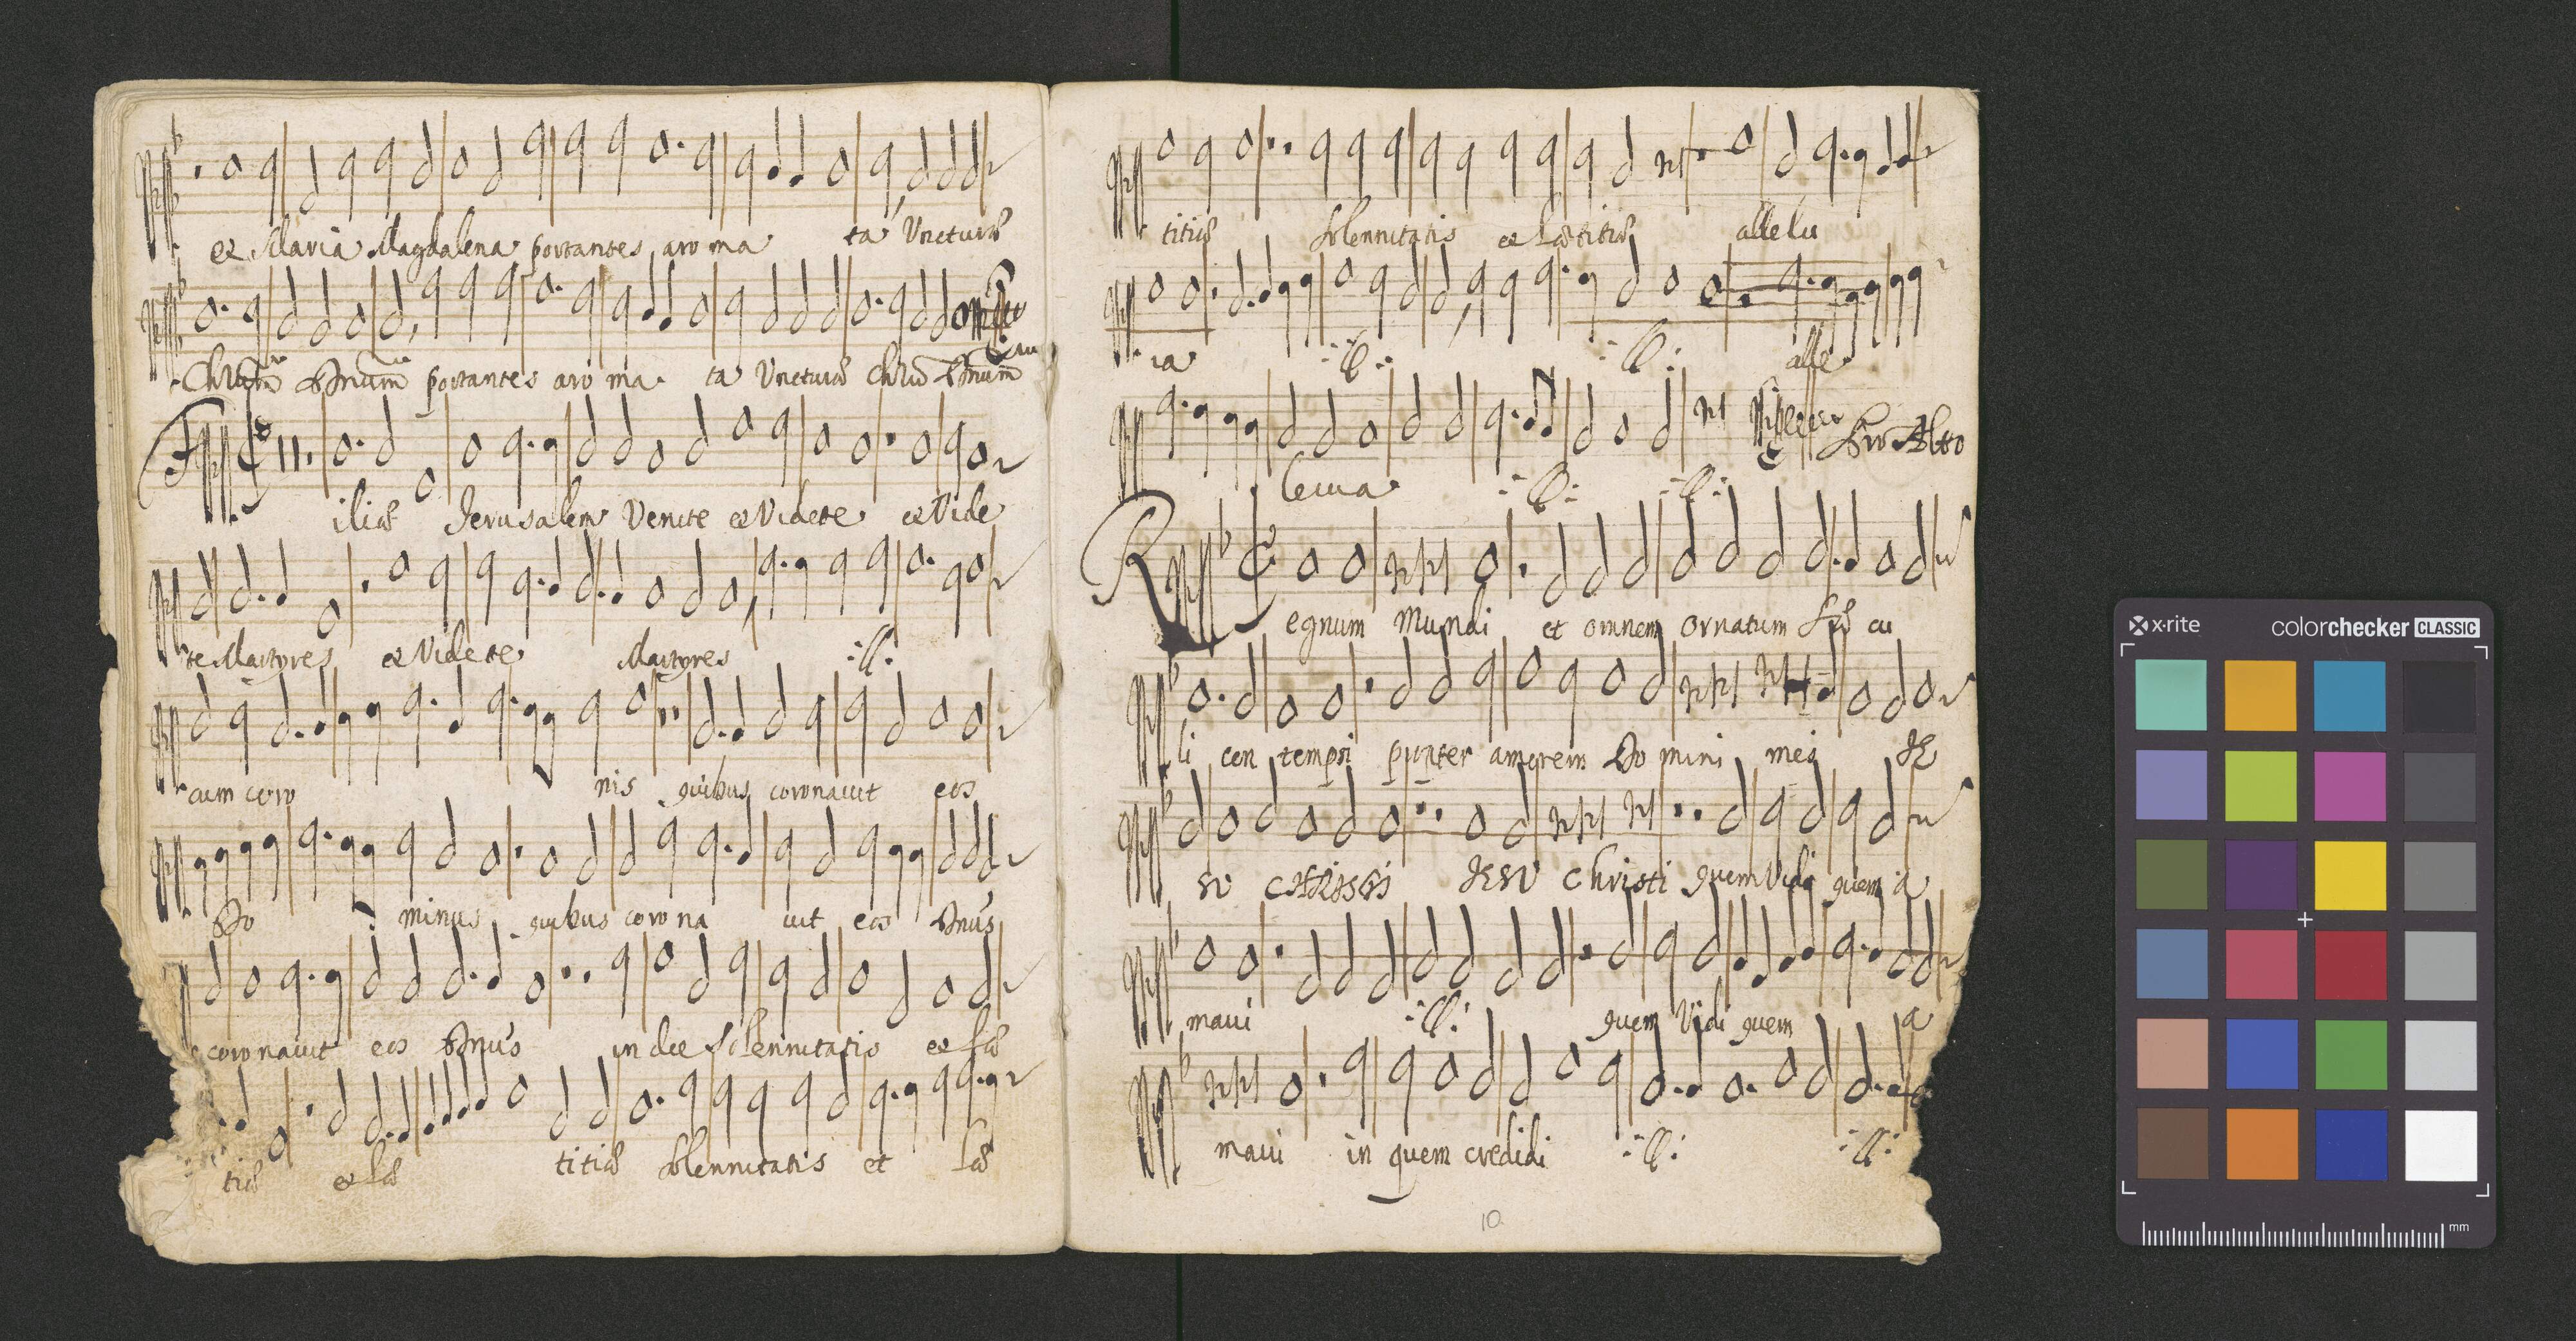 et Maria Magdalena portantes aroma ta Uncturæ
Chr̄um Dn̄um portantes aro ma ta Uncturæ Chr̄u Dn̄um
Filiæ Jerusalem Venite et Videte et Vide
te Martyres et Videte Martyres :ll:
cum coro nis quibus coronauit eos
Do minus quibus corona uit eos Dn̄us
coronauit eos Dn̄us in die solennitatis et læ
tiæ et læ titiæ solennitatis et læ
titiæ solennitatis et lætitiæ allelu
ia :ll: :ll: alle
leuia :ll: :ll:
Pro Alto
Regnum Mundi et omnem ornatum Sæ cu
li con tempsi propter amorem Do mini mei JE
SU CHRISTI JESU Christi quem Vidi quem a
maui :ll: quem Vidi quem a
maui in quem credidi :ll: :ll:
10
x-rite
colorchecker CLASSIC
mm